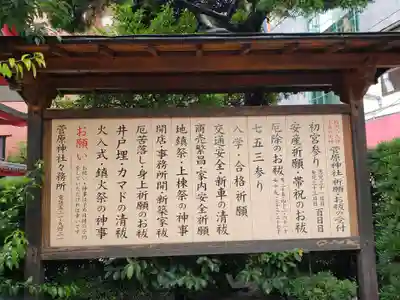 菅原神社 祈願・お祓の受付
初宮参り
百日目
安産祈願・帯祝のお祓
厄除のお祓
七五三参り
入学・合格祈願
交通安全・新車の清祓
商売繁昌・家内安全祈願
地鎮祭・上棟祭の神事
開店・事務所開・新築家祓
厄苦落し・身上祈願のお祓
井戸埋・カマドの清祓
火入式・鎮火祭の神事
お願い
菅原神社々務所